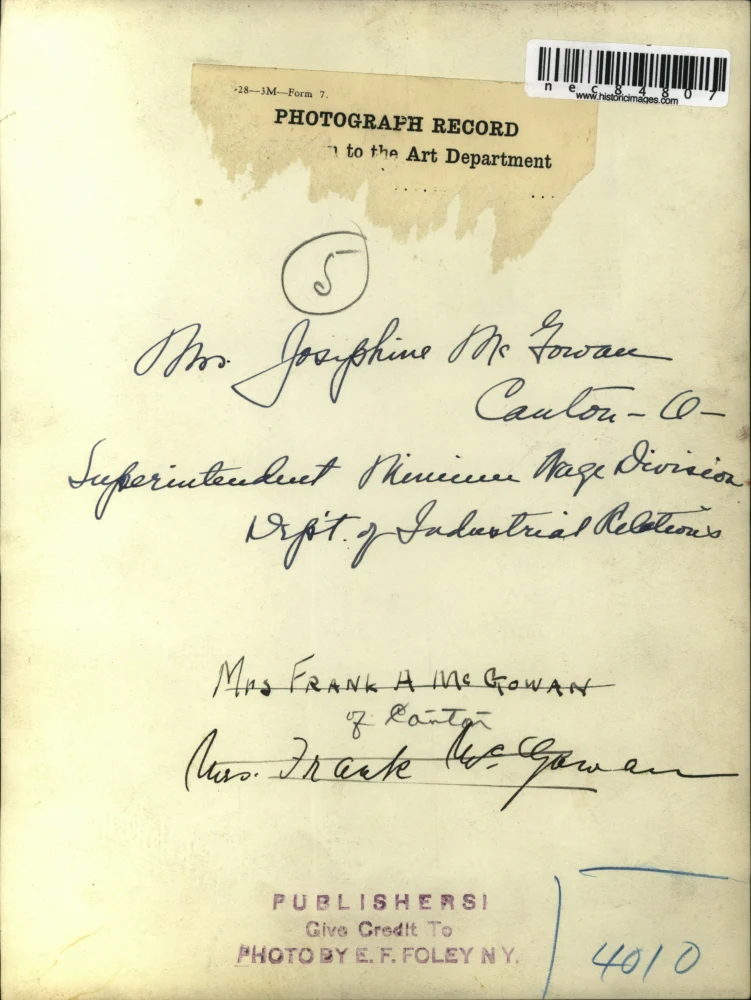 nec84807
www.historicimages.com
-28—3M—Form 7.
PHOTOGRAPH RECORD
n to the Art Department
5
Mrs. Josephine McGowan
Canton - O -
Superintendent Minimum Wage Division
Dep't. of Industrial Relations
MRS FRANK H MCGOWAN
of Canton
Mrs. Frank McGowan
PUBLISHERS!
Give Credit To
PHOTO BY E. F. FOLEY N.Y.
4010